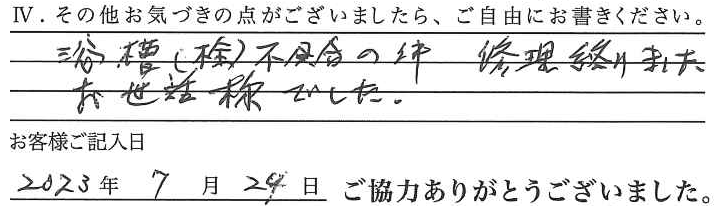 Ⅳ．その他お気づきの点がございましたら、ご自由にお書きください。
浴槽（栓）不具合の件 修理終りました
お世話様でした。
お客様ご記入日
2023年 7月 29日 ご協力ありがとうございました。